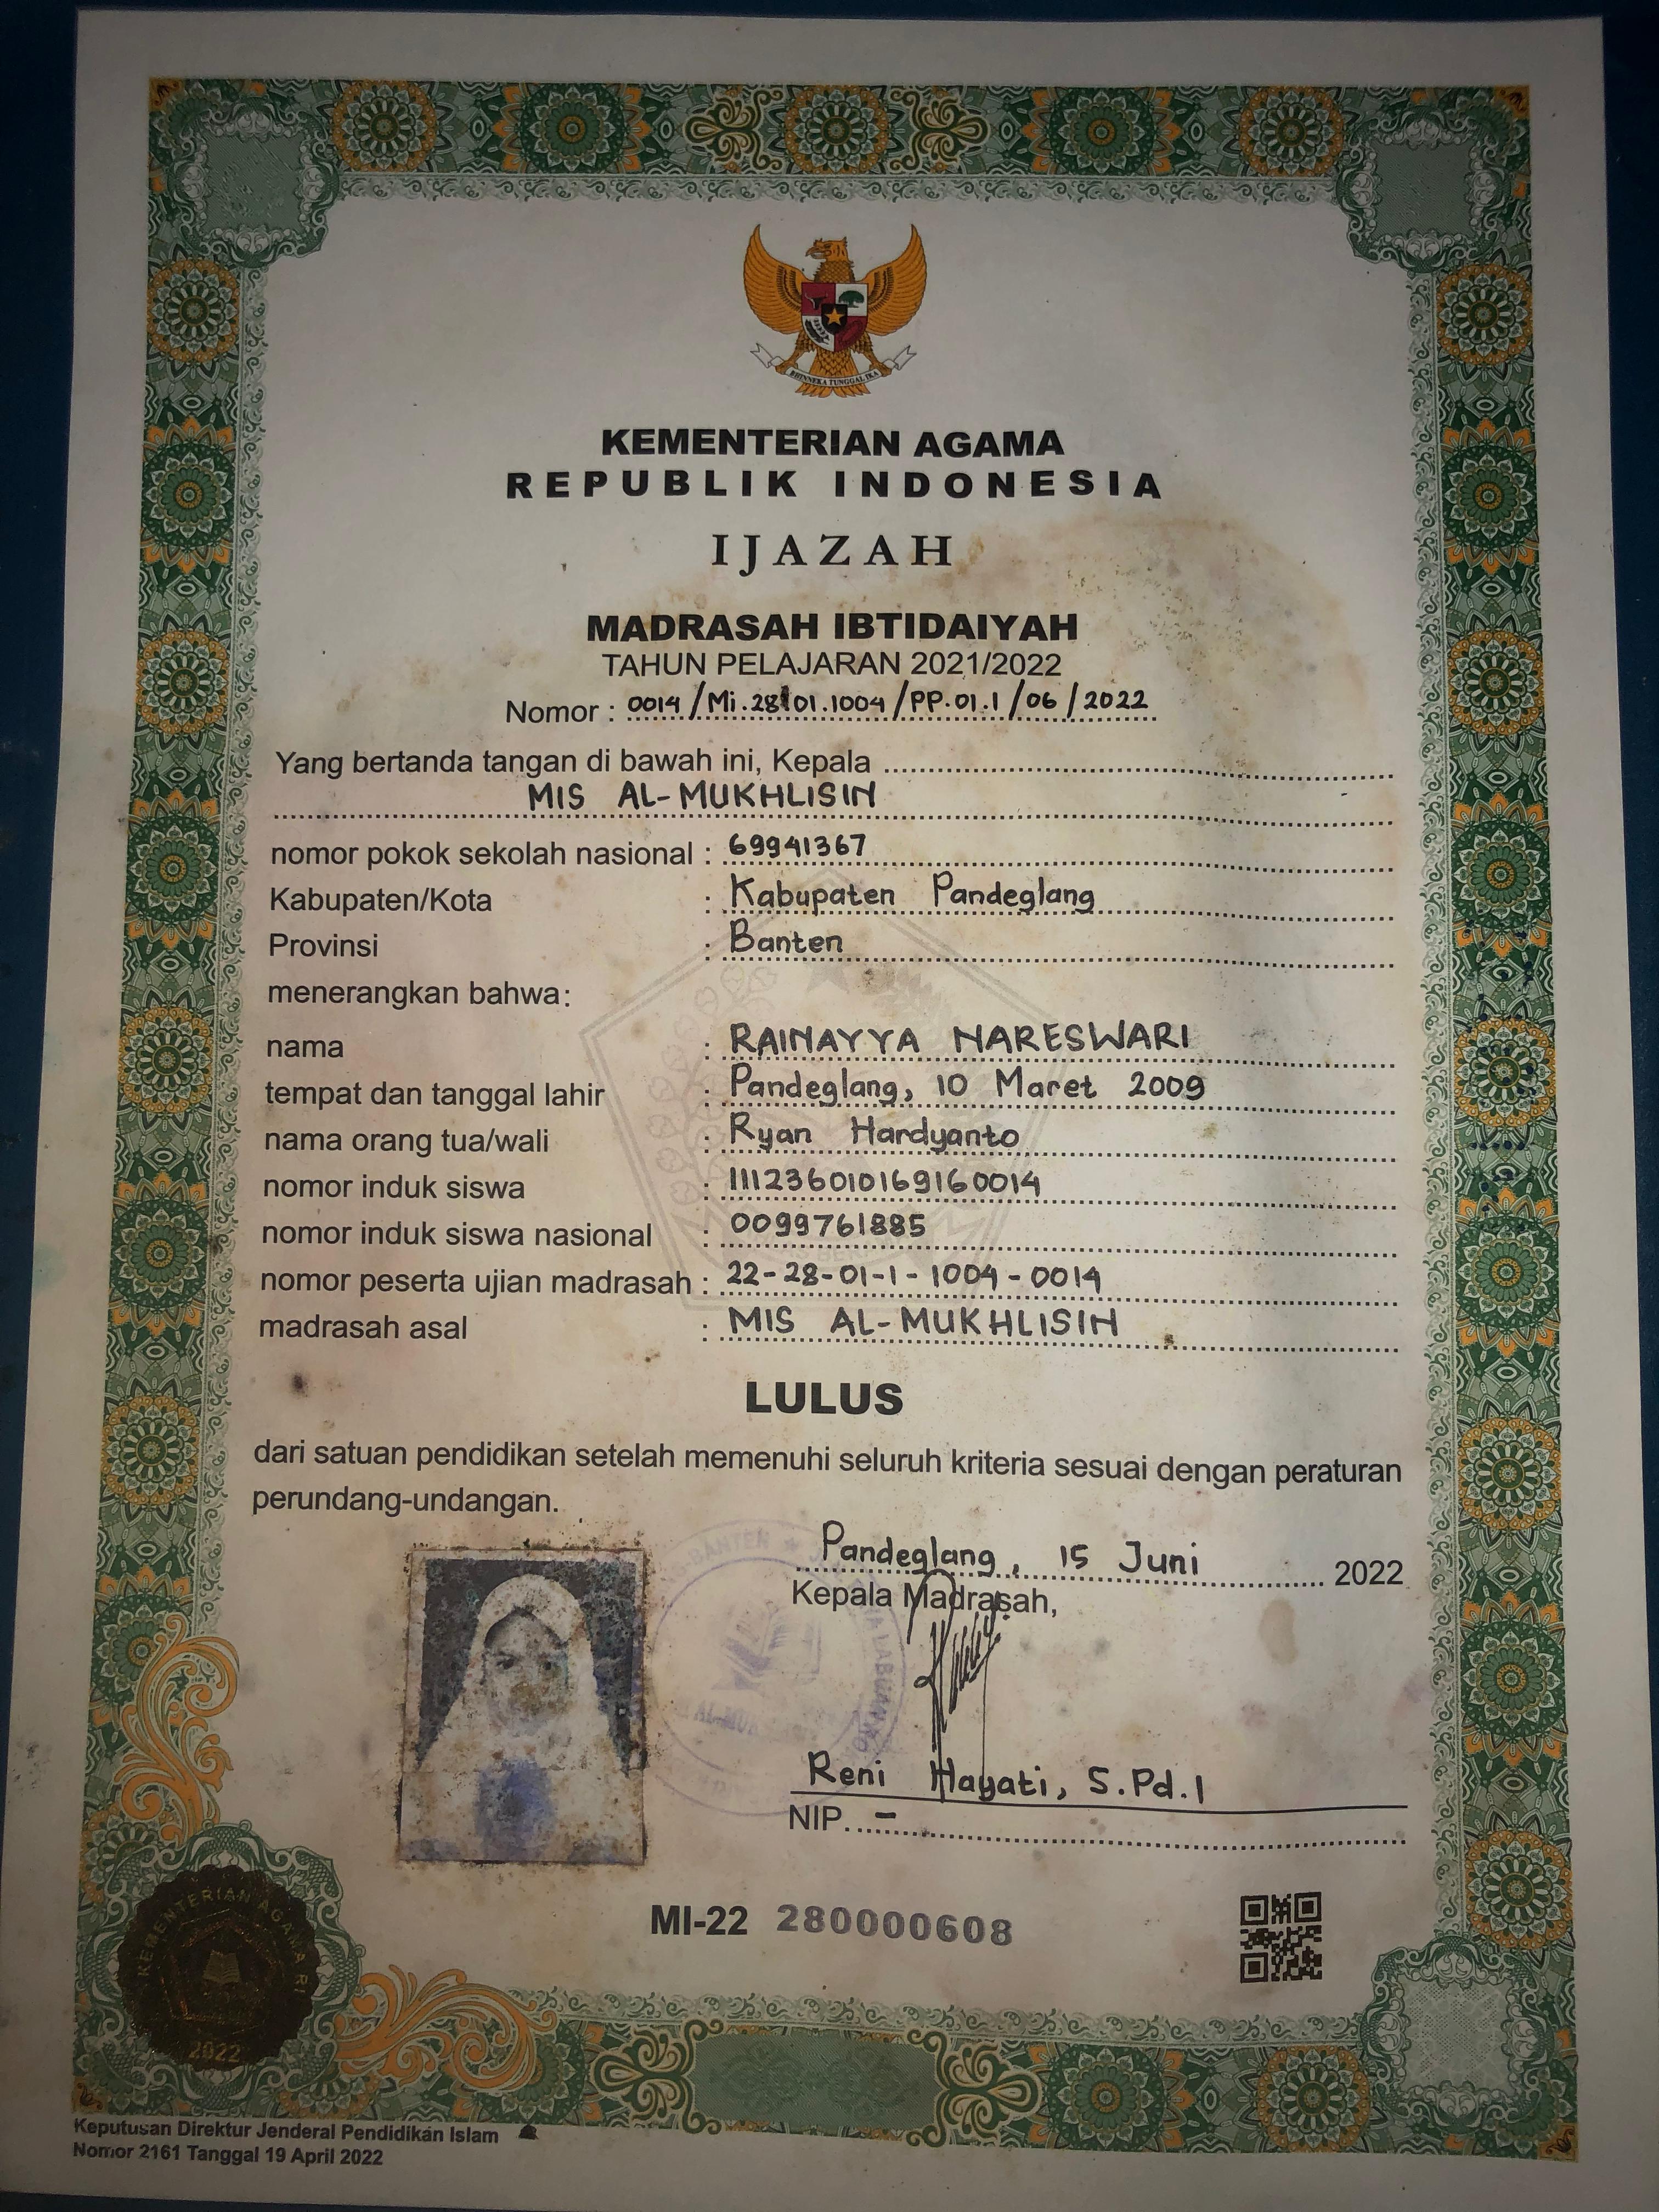 BHINNEKA TUNGGAL IKA
KEMENTERIAN AGAMA
REPUBLIK INDONESIA
IJAZAH
MADRASAH IBTIDAIYAH
TAHUN PELAJARAN 2021/2022
Nomor : 0014/Mi.28.01.1004/PP.01.1/06/2022
Yang bertanda tangan di bawah ini, Kepala
MIS AL-MUKHLISIN
nomor pokok sekolah nasional : 69941367
Kabupaten/Kota : Kabupaten Pandeglang
Provinsi : Banten
menerangkan bahwa:
nama : RAINAYYA NARESWARI
tempat dan tanggal lahir : Pandeglang, 10 Maret 2009
nama orang tua/wali : Ryan Hardyanto
nomor induk siswa : 111236010169160014
nomor induk siswa nasional : 0099761885
nomor peserta ujian madrasah : 22-28-01-1-1004-0014
madrasah asal : MIS AL-MUKHLISIN
LULUS
dari satuan pendidikan setelah memenuhi seluruh kriteria sesuai dengan peraturan
perundang-undangan.
Pandeglang, 15 Juni 2022
Kepala Madrasah,
BANTEN
Reni Hayati, S.Pd.I
NIP. -
MI-22 280000608
KEMENTERIAN AGAMA RI
2022
Keputusan Direktur Jenderal Pendidikan Islam
Nomor 2161 Tanggal 19 April 2022